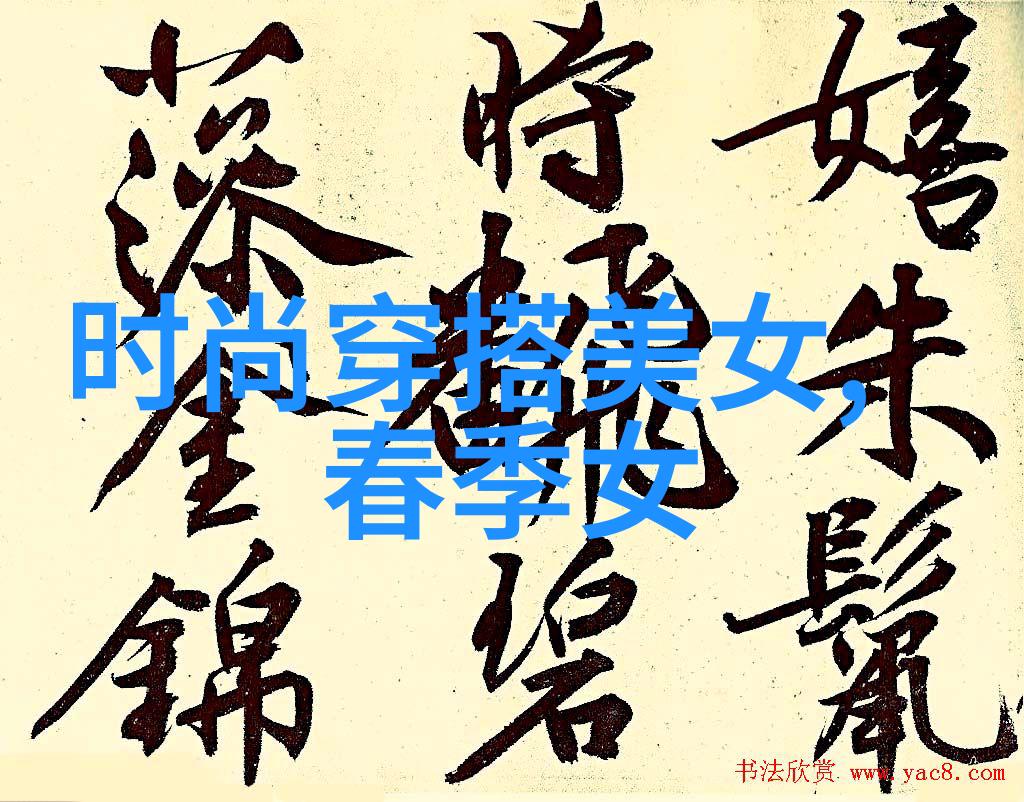 嬉朱鬣
時飜碧
藻
錦
时尚穿搭美女,
春季女
书法欣赏 www.yac8.com